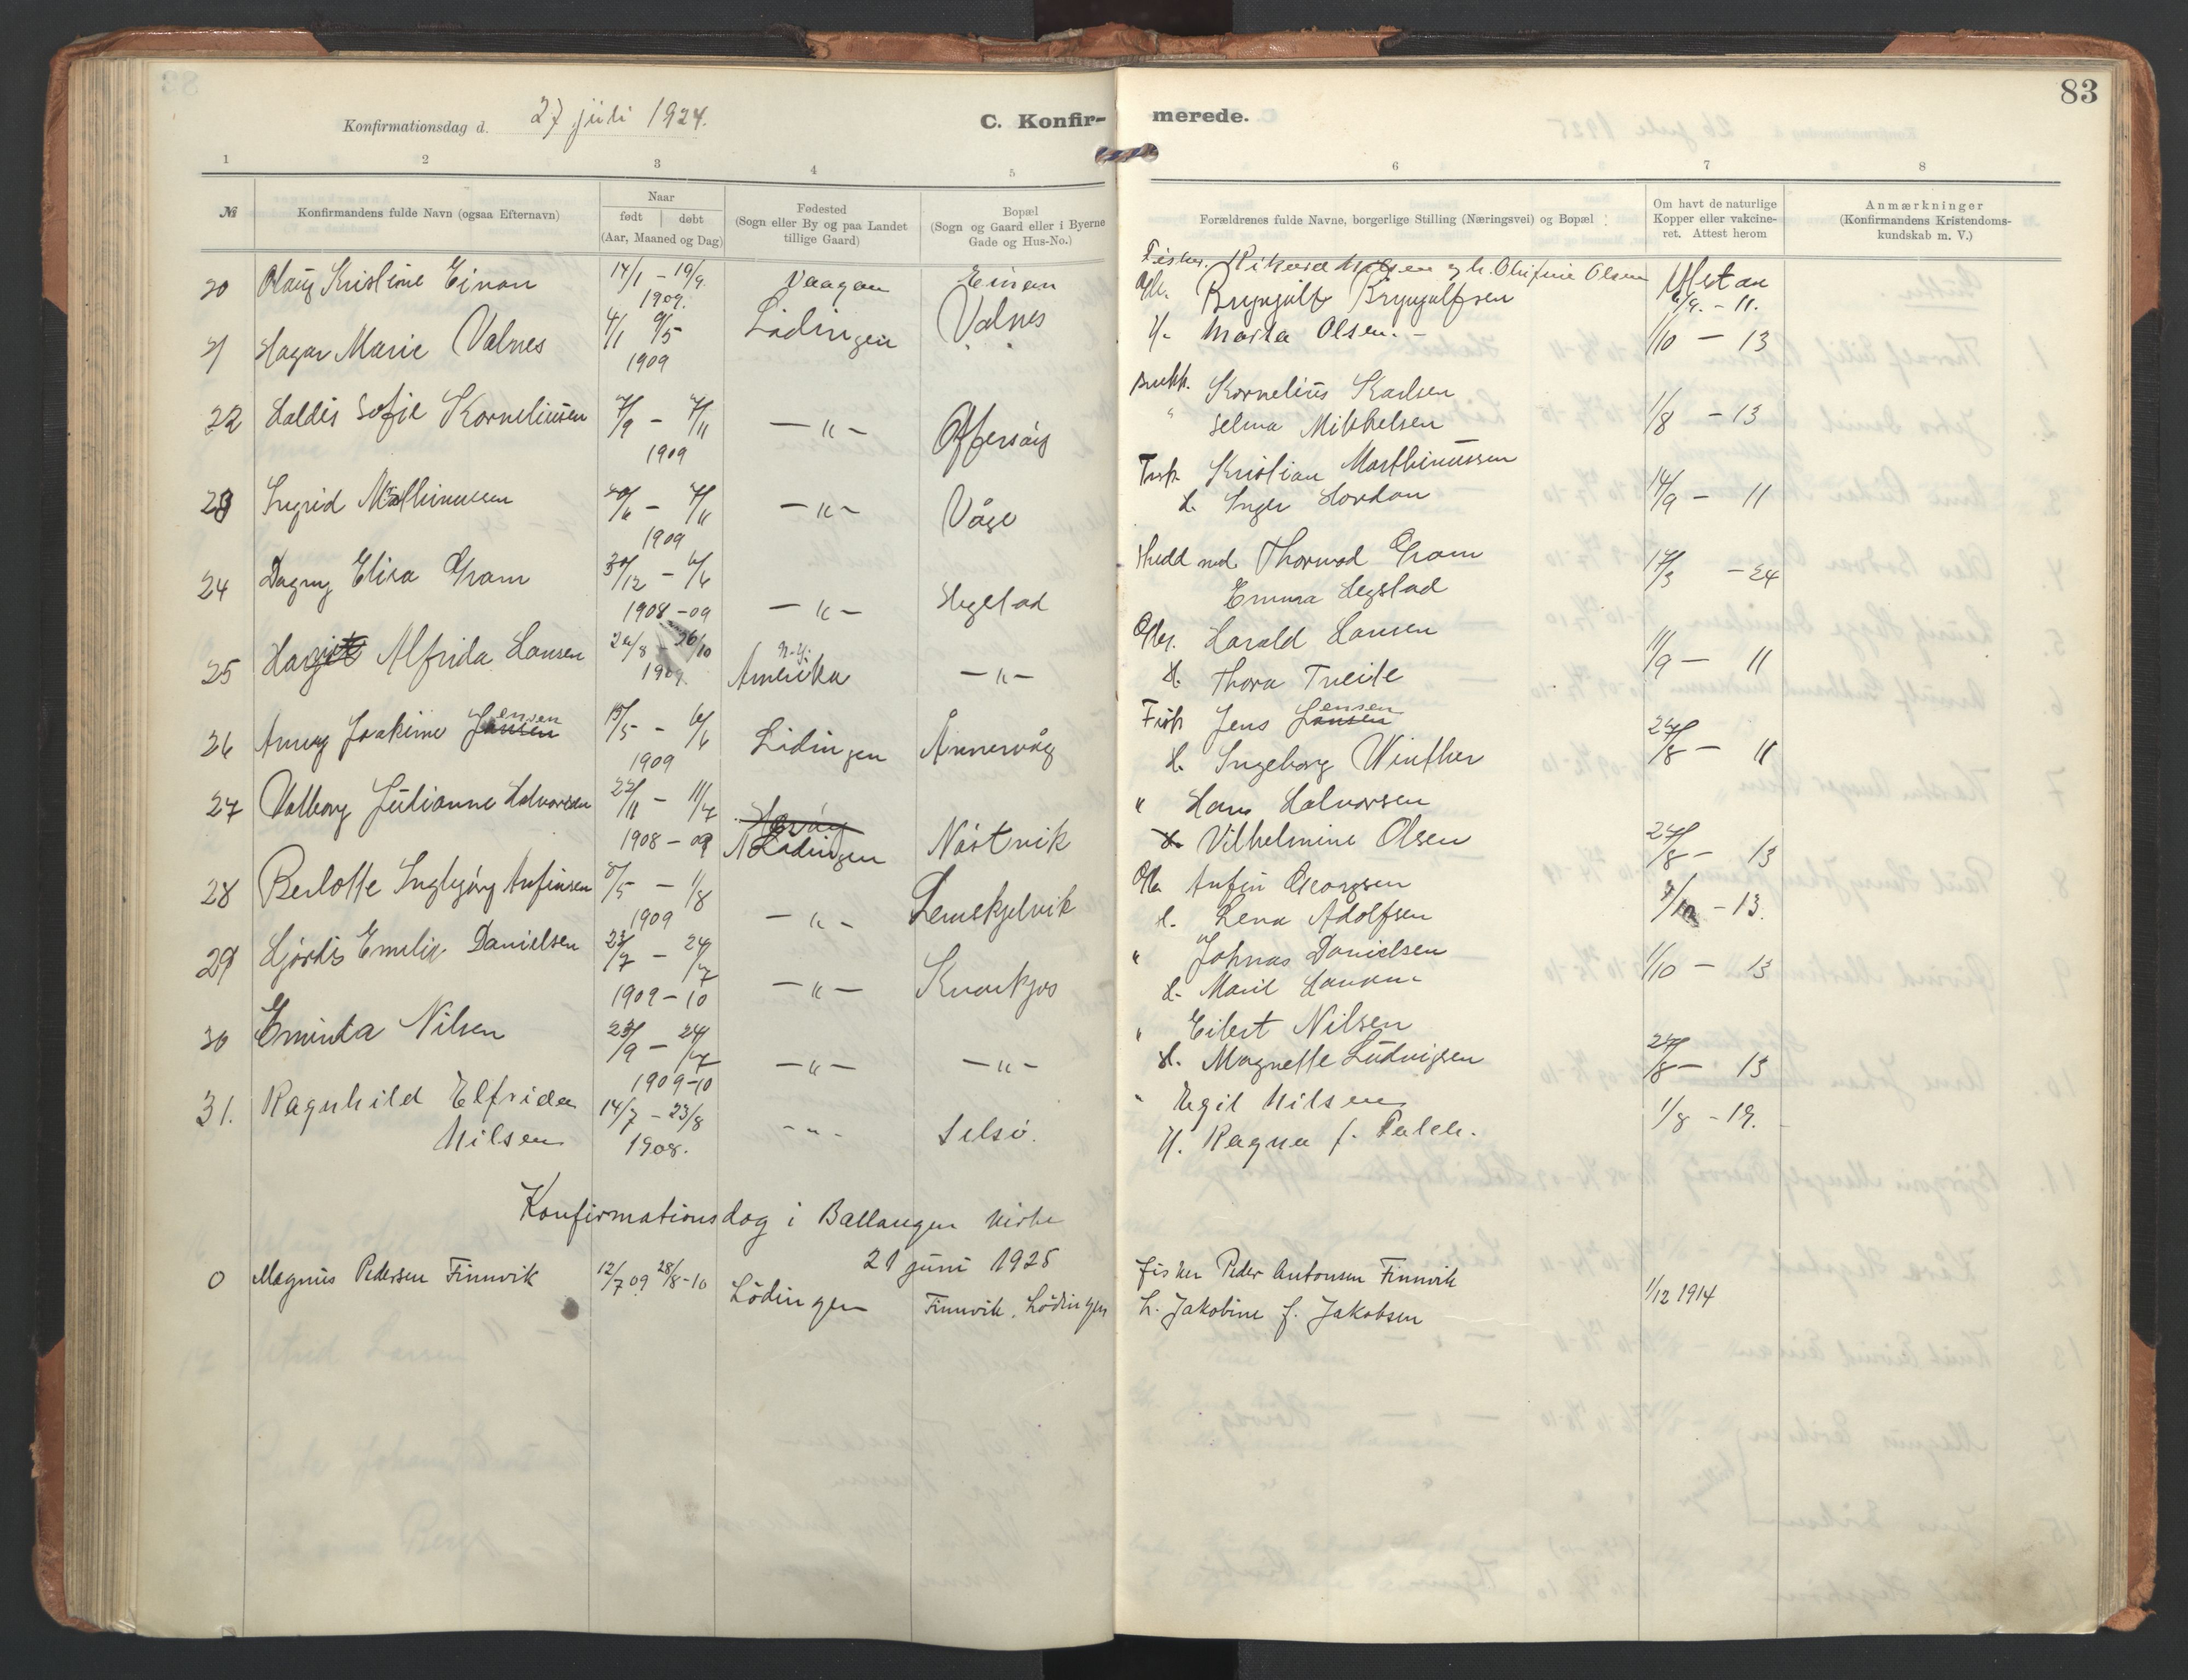 83
Konfirmationsdag d. 27 juli 1924.
C. Konfirmerede.
1 2 3 4 5 6 7 8
№
Konfirmandens fulde Navn (ogsaa Efternavn)
Naar
født | døbt
(Aar, Maaned og Dag)
Fødested
(Sogn eller By og paa Landet
tillige Gaard)
Bopæl
(Sogn og Gaard eller i Byerne
Gade og Hus-No.)
Forældrenes fulde Navne, borgerlige Stilling (Næringsvei) og Bopæl
Om havt de naturlige
Kopper eller vakcine-
ret. Attest herom
Anmærkninger
(Konfirmandens Kristendoms-
kundskab m. V.)
20 Olaug Kristine Einan 14/1 - 19/9 Vaagan Einan Fisker. Rikard Nilsen g h. Olufine Olsen Attest an
1909. 6/9. - 11.
21 Hagar Marie Valnes 4/1 9/5 Lødingen Valnes Gbr. Brynjulf Brynjulfsen
1909 H. Marta Olsen. - 1/10 - 13
22 Haldis Sofie Korneliussen 7/9 - 7/11 - " - Offersøy Brukk. Kornelius Karlsen 1/8 - 13
1909 " Selma Mikkelsen
23 Ingrid Mathinussen 20/6 - 7/11 - " - Våge Fisk. Kristian Marthinussen 14/9 - 11
1909 H. Inger Hordan
24 Dagny Elisa Gram 30/12 - 6/6 - " - Hegstad Thormod Gram 17/3 - 24
1908-09 Emma Hegstad
25 Alfrida Hansen 26/8 - 26/10 Amerika - " - Gbr. Harald Hansen 11/9 - 11
1909. H. Thora Treite
26 Anny Joakime Jensen 15/5 - 6/6 Lødingen Ånnesvåg Fisk Jens Jensen 24/8 - 11
1909 H. Ingeborg Winther
27 Valborg Julianne Halvorsen 22/11 - 11/7 Lødingen Nøstvik " Hans Halvorsen
1908-09 H. Vilhelmine Olsen 24/8 - 13
28 Berlotte Ingbjørg Anfinsen 8/5 - 1/8 - " - Lemekjelvik Gbr Anfin Georgsen
1909 H. Lena Adolfsen 9/10 - 13.
29 Hjørdis Emelie Danielsen 23/7 - 24/7 - " - Kvarkjos " Johnas Danielsen 1/10 - 13
1909-10 H. Marit
30 Eminda Nilsen 23/9 - 24/7 - " - - " - " Eilert Nilsen
1909-10 H. Magnette Ludvigsen 24/8 - 13
31. Ragnhild Elfrida 14/7 - 23/8 - " - Selsø. " Egil Nilsen 1/8 - 19.
Nilsen 1908. H. Ragna f.
Konfirmationsdag i Ballangen kirke
21 juni 1925
0 Magnus Pedersen Finnvik 12/7 09 28/8-10 Lødingen Finnvik, Lødingen fisker Peder Antonsen Finnvik 1/12 1914
h. Jakobine f. Jakobsen